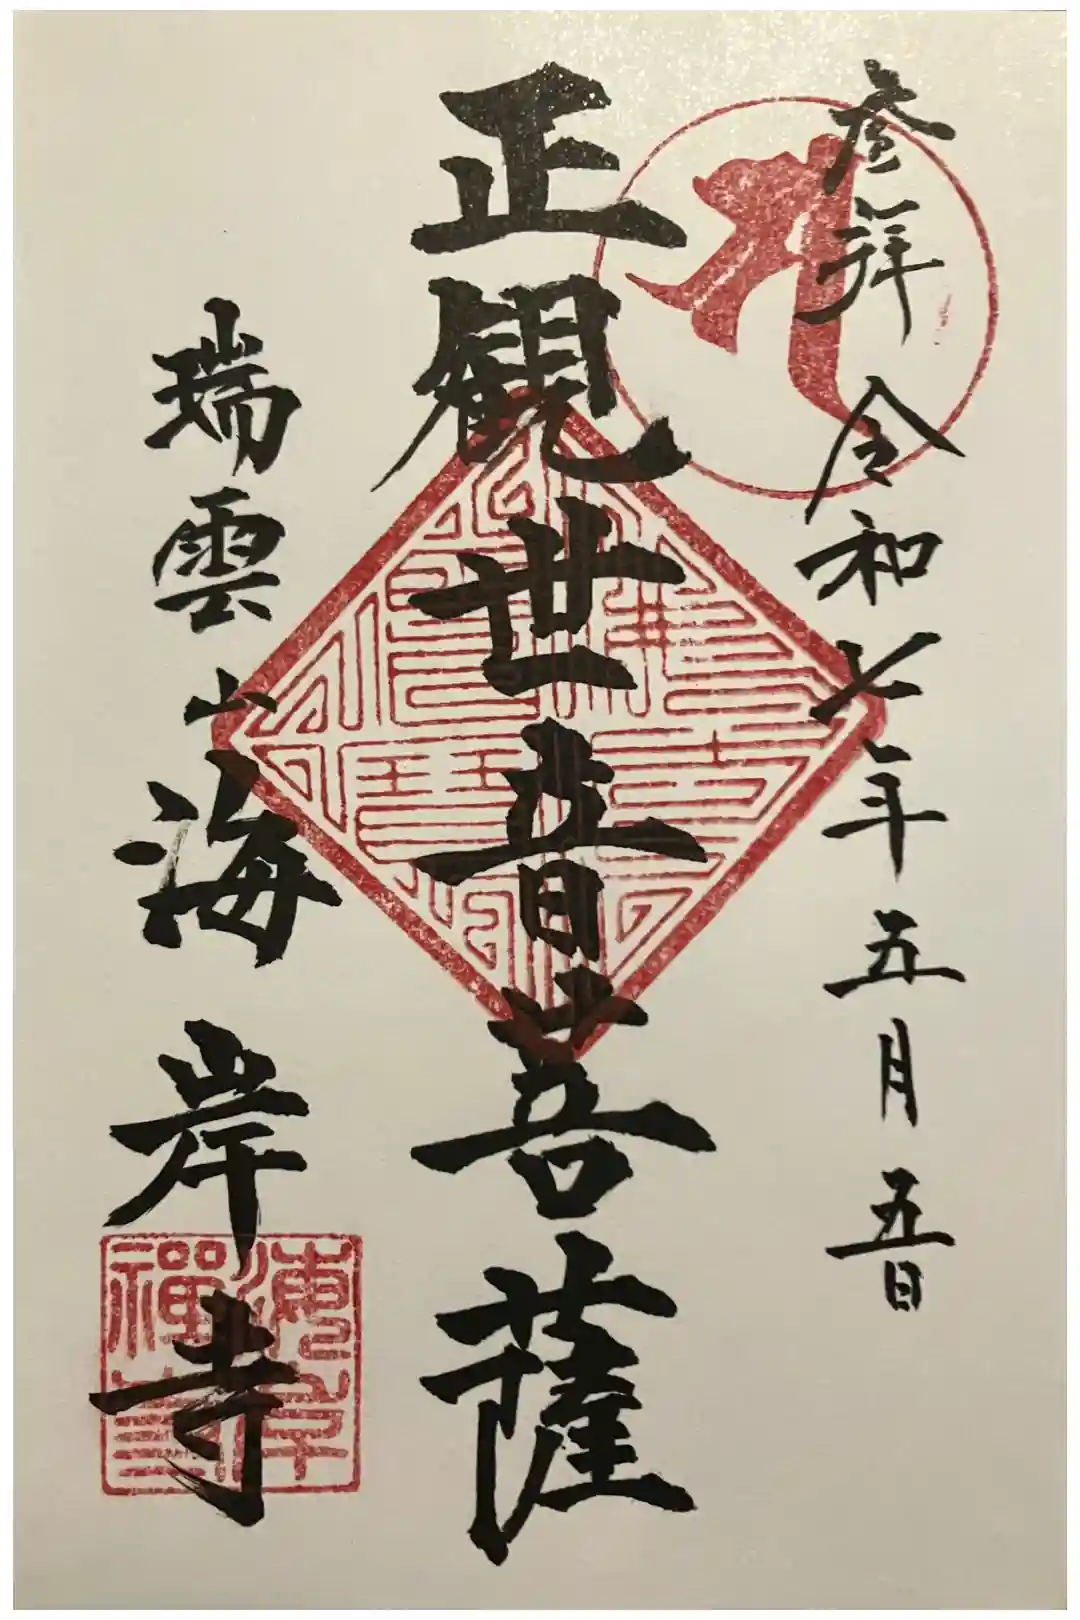 参拝 令和七年五月五日
正観世音菩薩
瑞雲山 海岸寺
海岸禅寺